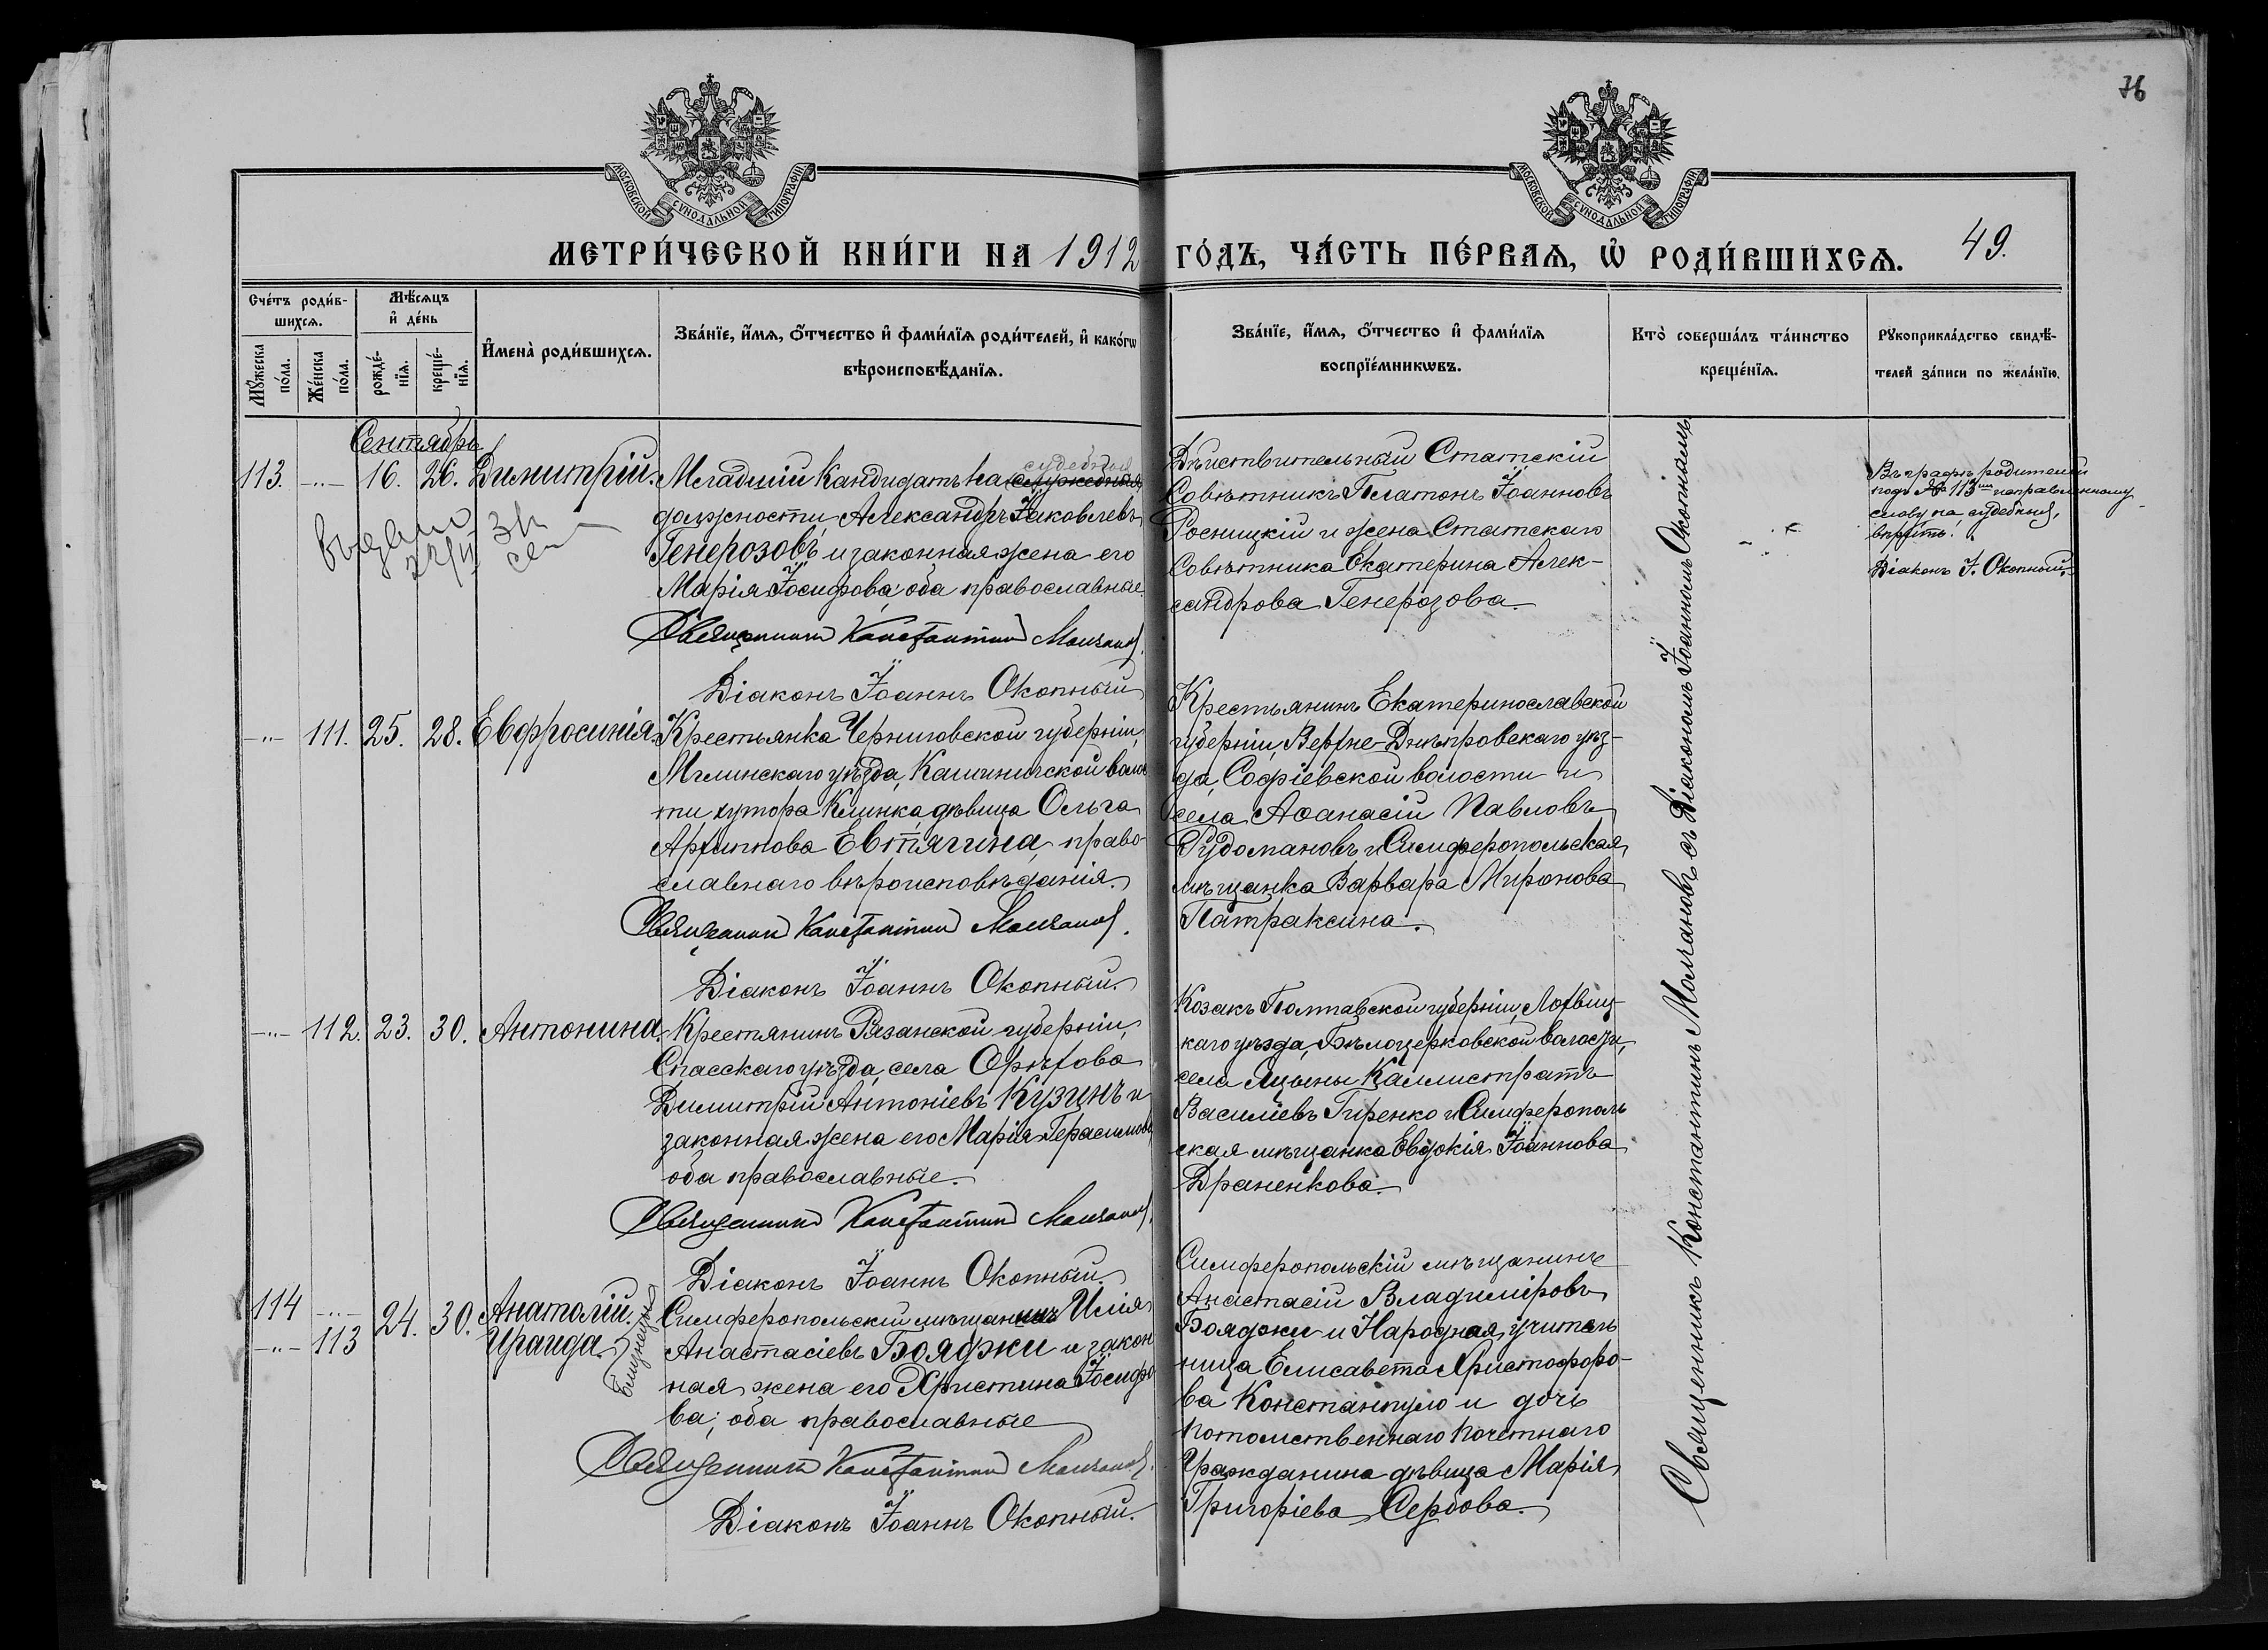 76
МОСКОВСКОЙ СѴНОДАЛЬНОЙ ТИПОГРАФІИ
МОСКОВСКОЙ СѴНОДАЛЬНОЙ ТИПОГРАФІИ
МЕТРИ́ЧЕСКОЙ КНИ́ГИ НА 1912 ГО́ДЪ, ЧА́СТЬ ПЕ́РВАѦ, Ѡ РОДИ́ВШИХСѦ. 49.
Счéтъ роди́в-
шихсѧ.
Мꙋ́жеска по́ла.
Же́нска по́ла.
Мѣ́сѧцъ
и де́нь
рожде́-
нїѧ.
креще́-
нїѧ.
Имена̀ роди́вшихсѧ.
Зва́нїе, и́мѧ, о́тчество и фами́лїѧ роди́телей, и како́гѡ
вѣроисповѣ́данїѧ.
Зва́нїе, и́мѧ, о́тчество и фами́лїѧ
воспрїе́мникѡвъ.
Кто̀ соверша́лъ та́инство
креще́нїѧ.
Рꙋкоприкла́дство свидѣ́-
телей за́писи по жела́нїю.
Сентябрь
113. -"- 16. 26. Димитрій.
выдано
Младшій Кандидатъ на служебныя судебныя
должности Александръ Іаковлевъ
Генерозовъ и законная жена его
Марія Іосифова, оба православные.
Священникъ Константинъ Молчановъ.
Діаконъ Іоаннъ Окопный
Дѣйствительный Статскій
Совѣтникъ Платонъ Іоанновъ
Росницкій и жена Статскаго
Совѣтника Екатерина Алек-
сандрова Генерозова.
Въ графѣ родителей
подъ № 113 исправленному
слову на судебныя,
вѣрить.
Діаконъ І. Окопный.
-"- 111. 25. 28. Евфросинія.
Крестьянка Черниговской губерніи,
Мглинскаго уѣзда, волос
ти хутора Клинка, дѣвица Ольга
Архиппова Евтягина, право-
славнаго вѣроисповѣданія.
Священникъ Константинъ Молчановъ.
Діаконъ Іоаннъ Окопный.
Крестьянинъ Екатеринославской
губерніи, Верхне-Днѣпровскаго уѣз-
да, Софіевской волости и
села Аѳанасій Павловъ
Рудомановъ и Симферопольская
мѣщанка Варвара Миронова
Патраксина.
-"- 112. 23. 30. Антонина.
Крестянинъ Рязанской губерніи,
Спасскаго уѣзда, села Орѣхова
Димитрій Антоніевъ Кузинъ и
законная жена его Марія Герасимова
оба православные.
Священникъ Константинъ Молчановъ.
Діаконъ Іоаннъ Окопный.
Козакъ Полтавской губерніи, Лохвиц-
каго уѣзда, Бѣлоцерковской волости,
села Яцыны Каллистратъ
Василіевъ Гиренко и Симферополь
ская мѣщанка Евдокія Іоаннова
Драненкова.
114 -"- 24. 30. Анатолій.
-"- 113 Ираида.
Близнецы
Симферопольскій мѣщанинъ Илія
Анастасіевъ Бояджи и закон
ная жена его Христина Іосифо
ва; оба православные
Священникъ Константинъ Молчановъ.
Діаконъ Іоаннъ Окопный.
Симферопольскій мѣщанинъ
Анастасій Владиміровъ
Бояджи и Народная учитель
ница Елисавета Христофоро-
ва Константуло и дочь
потомственнаго почетнаго
Гражданина дѣвица Марія
Григоріева Сербова.
Священникъ Константинъ Молчановъ съ Діакономъ Іоанномъ Окопнымъ